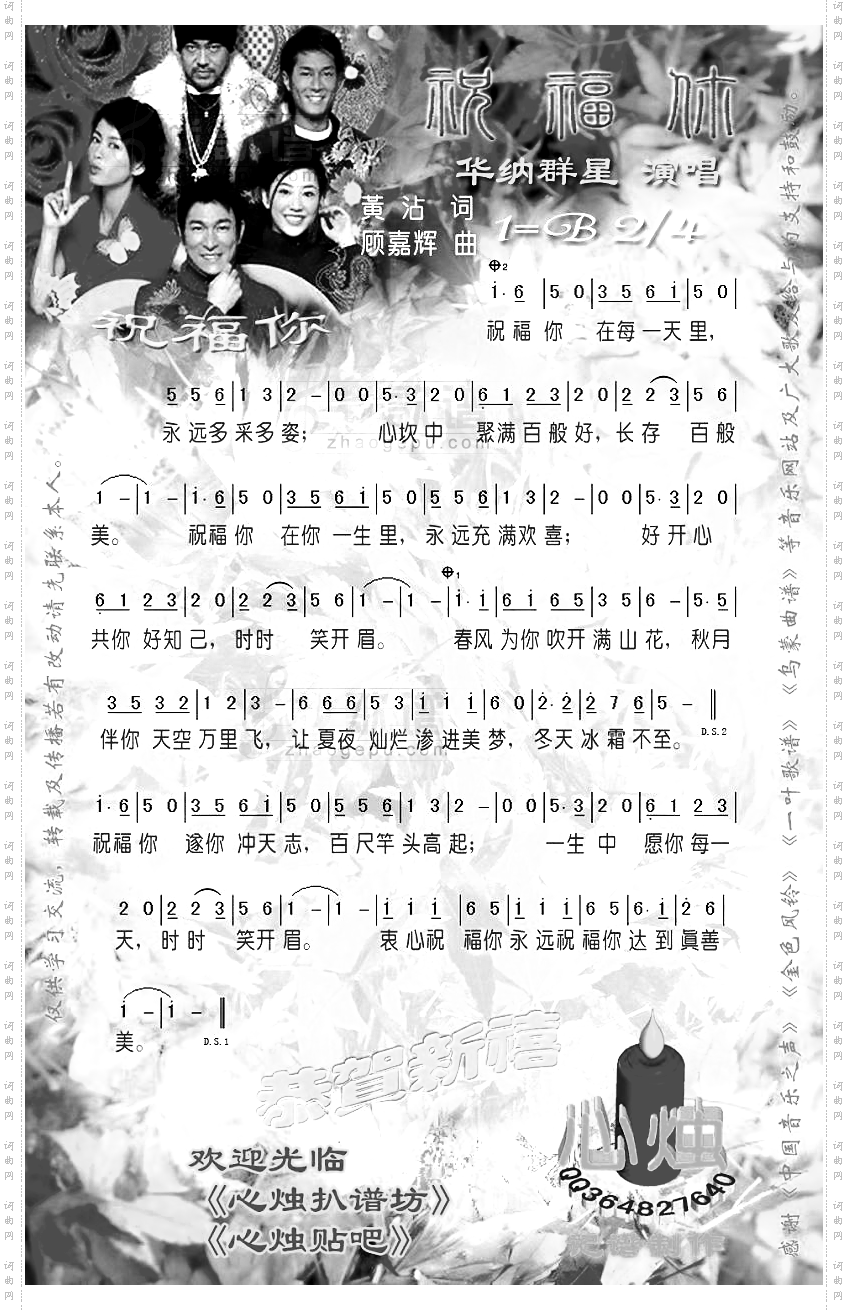 祝福你
华纳群星 演唱
黄沾 词
顾嘉辉 曲
1=B 2/4
祝福你
𝄌2
i·6 |5 0|3 5 6 i|5 0|
祝福你 在每一天里，
5 5 6|1 3|2 －|0 0|5·3|2 0|6 1 2 3|2 0|2 2 3|5 6|
永远多采多姿； 心坎中 聚满百般好，长存 百般
zhaogepu.com
1 －|1 －|i·6|5 0|3 5 6 i|5 0|5 5 6|1 3|2 －|0 0|5·3|2 0|
美。 祝福你 在你一生里，永远充满欢喜； 好开心
𝄌1
6 1 2 3|2 0|2 2 3|5 6|1 －|1 －|i·i|6 i 6 5|3 5|6 －|5·5|
共你好知己，时时 笑开眉。 春风为你吹开满山花，秋月
3 5 3 2|1 2|3 －|6 6 6|5 3|i i i|6 0|2·2|2 7 6|5 － ‖
伴你天空万里飞，让夏夜灿烂渗进美梦，冬天冰霜不至。 D.S.2
zhaogepu.com
i·6|5 0|3 5 6 i|5 0|5 5 6|1 3|2 －|0 0|5·3|2 0|6 1 2 3|
祝福你 遂你冲天志，百尺竿头高起； 一生中 愿你每一
2 0|2 2 3|5 6|1 －|1 －|i i i|6 5 5|i i i|6 5|6·i|2 6|
天，时时 笑开眉。 衷心祝 福你永远祝福你达到真善
i －|i － ‖
美。 D.S.1
恭贺新禧
欢迎光临
《心烛扒谱坊》
《心烛贴吧》
心烛
QQ364827640
仅供学习交流，转载及传播若有改动请先联系本人。
感谢《中国音乐之声》《金色风铃》《一叶歌谱》《乌蒙曲谱》等音乐网站及广大歌友给与的支持和鼓励。
词曲网